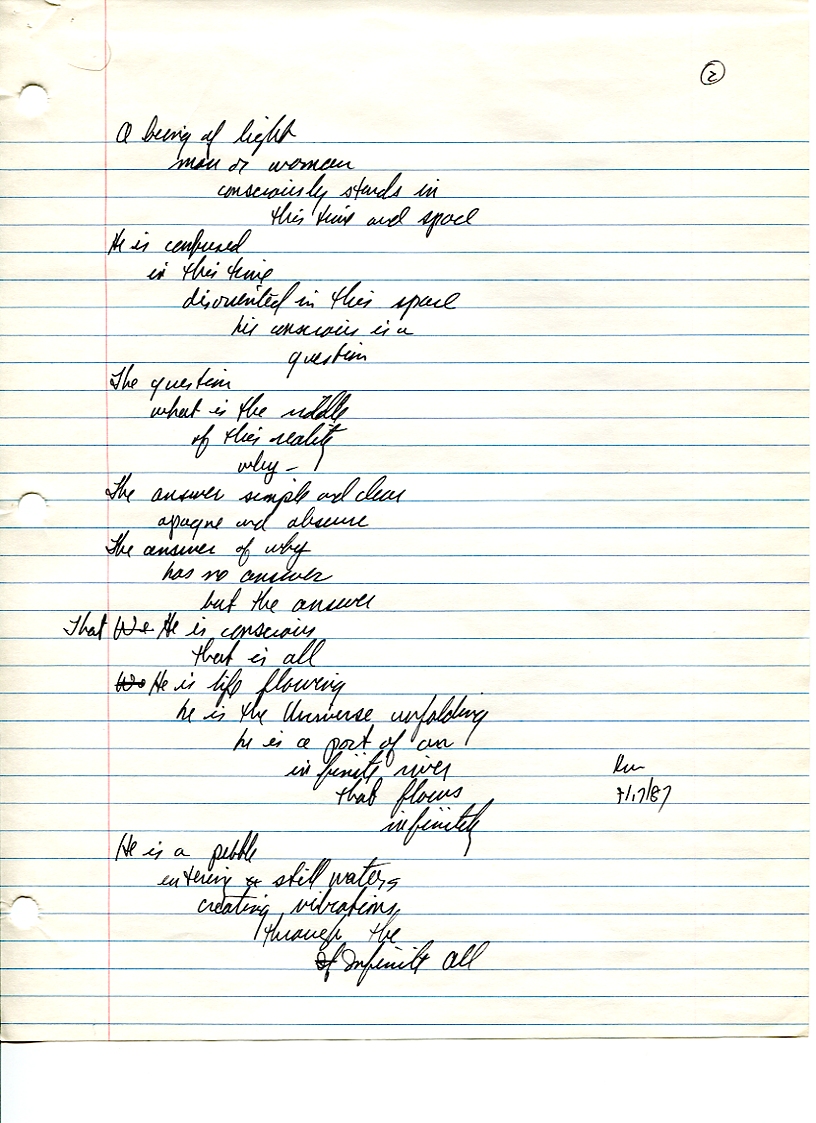 2
A being of light
man or woman
consciously stands in
this time and space
He is confused
in this time
disoriented in this space
his conscious is a
question
The question
what is the riddle
of this reality
why –
The answer simple and clear
opaque and obscure
The answer of why
has no answer
but the answer
That We He is conscious
that is all
We He is life flowing
he is the Universe unfolding
he is a part of an
infinite river
that flows
infinitely
/17/87
He is a pebble
entering still waters
creating vibrations
through the
of Infinite all